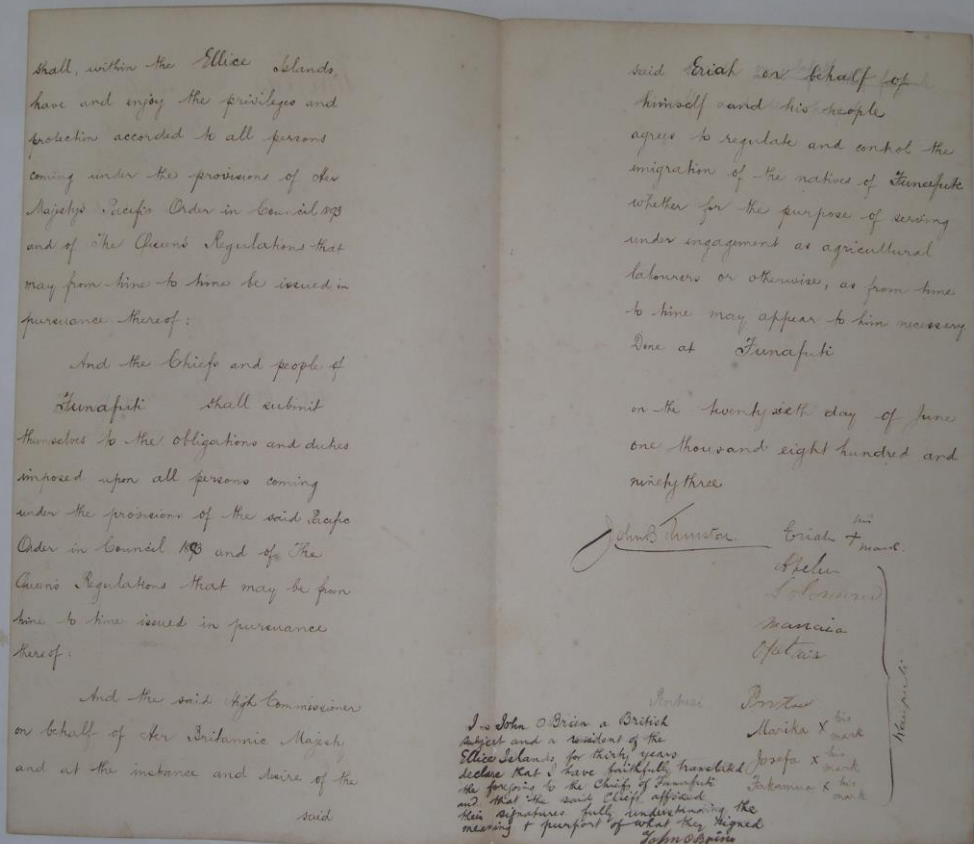 shall, within the Ellice Islands
have and enjoy the privileges and
protection accorded to all persons
coming under the provisions of Her
Majestys Pacific Order in Council 1893
and of The Queen's Regulations that
may from time to time be issued in
pursuance thereof:
And the Chiefs and people of
Funafuti shall submit
themselves to the obligations and duties
imposed upon all persons coming
under the provisions of the said Pacific
Order in Council 1893 and of The
Queen's Regulations that may be from
time to time issued in pursuance
thereof:
And the said High Commissioner
on behalf of Her Britannic Majesty
and at the instance and desire of the
said
said Eriah on behalf of
himself and his people
agrees to regulate and control the
emigration of the natives of Funafuti
whether for the purpose of serving
under engagement as agricultural
labourers or otherwise, as from time
to time may appear to him necessary
Done at Funafuti
on the twenty sixth day of June
one thousand eight hundred and
ninety three
John B Thurston
Eriah his + mark.
Solomona
Manaia
Opataia
Marika x his mark
Josefa x his mark
x his mark
Kaupuli
I John O'Brien a British
subject and a resident of the
Ellice Islands for thirty years
declare that I have faithfully translated
the foregoing to the Chiefs of Funafuti
and that the said Chiefs affixed
their signatures fully understanding the
meaning & purport of what they signed
John O'Brien